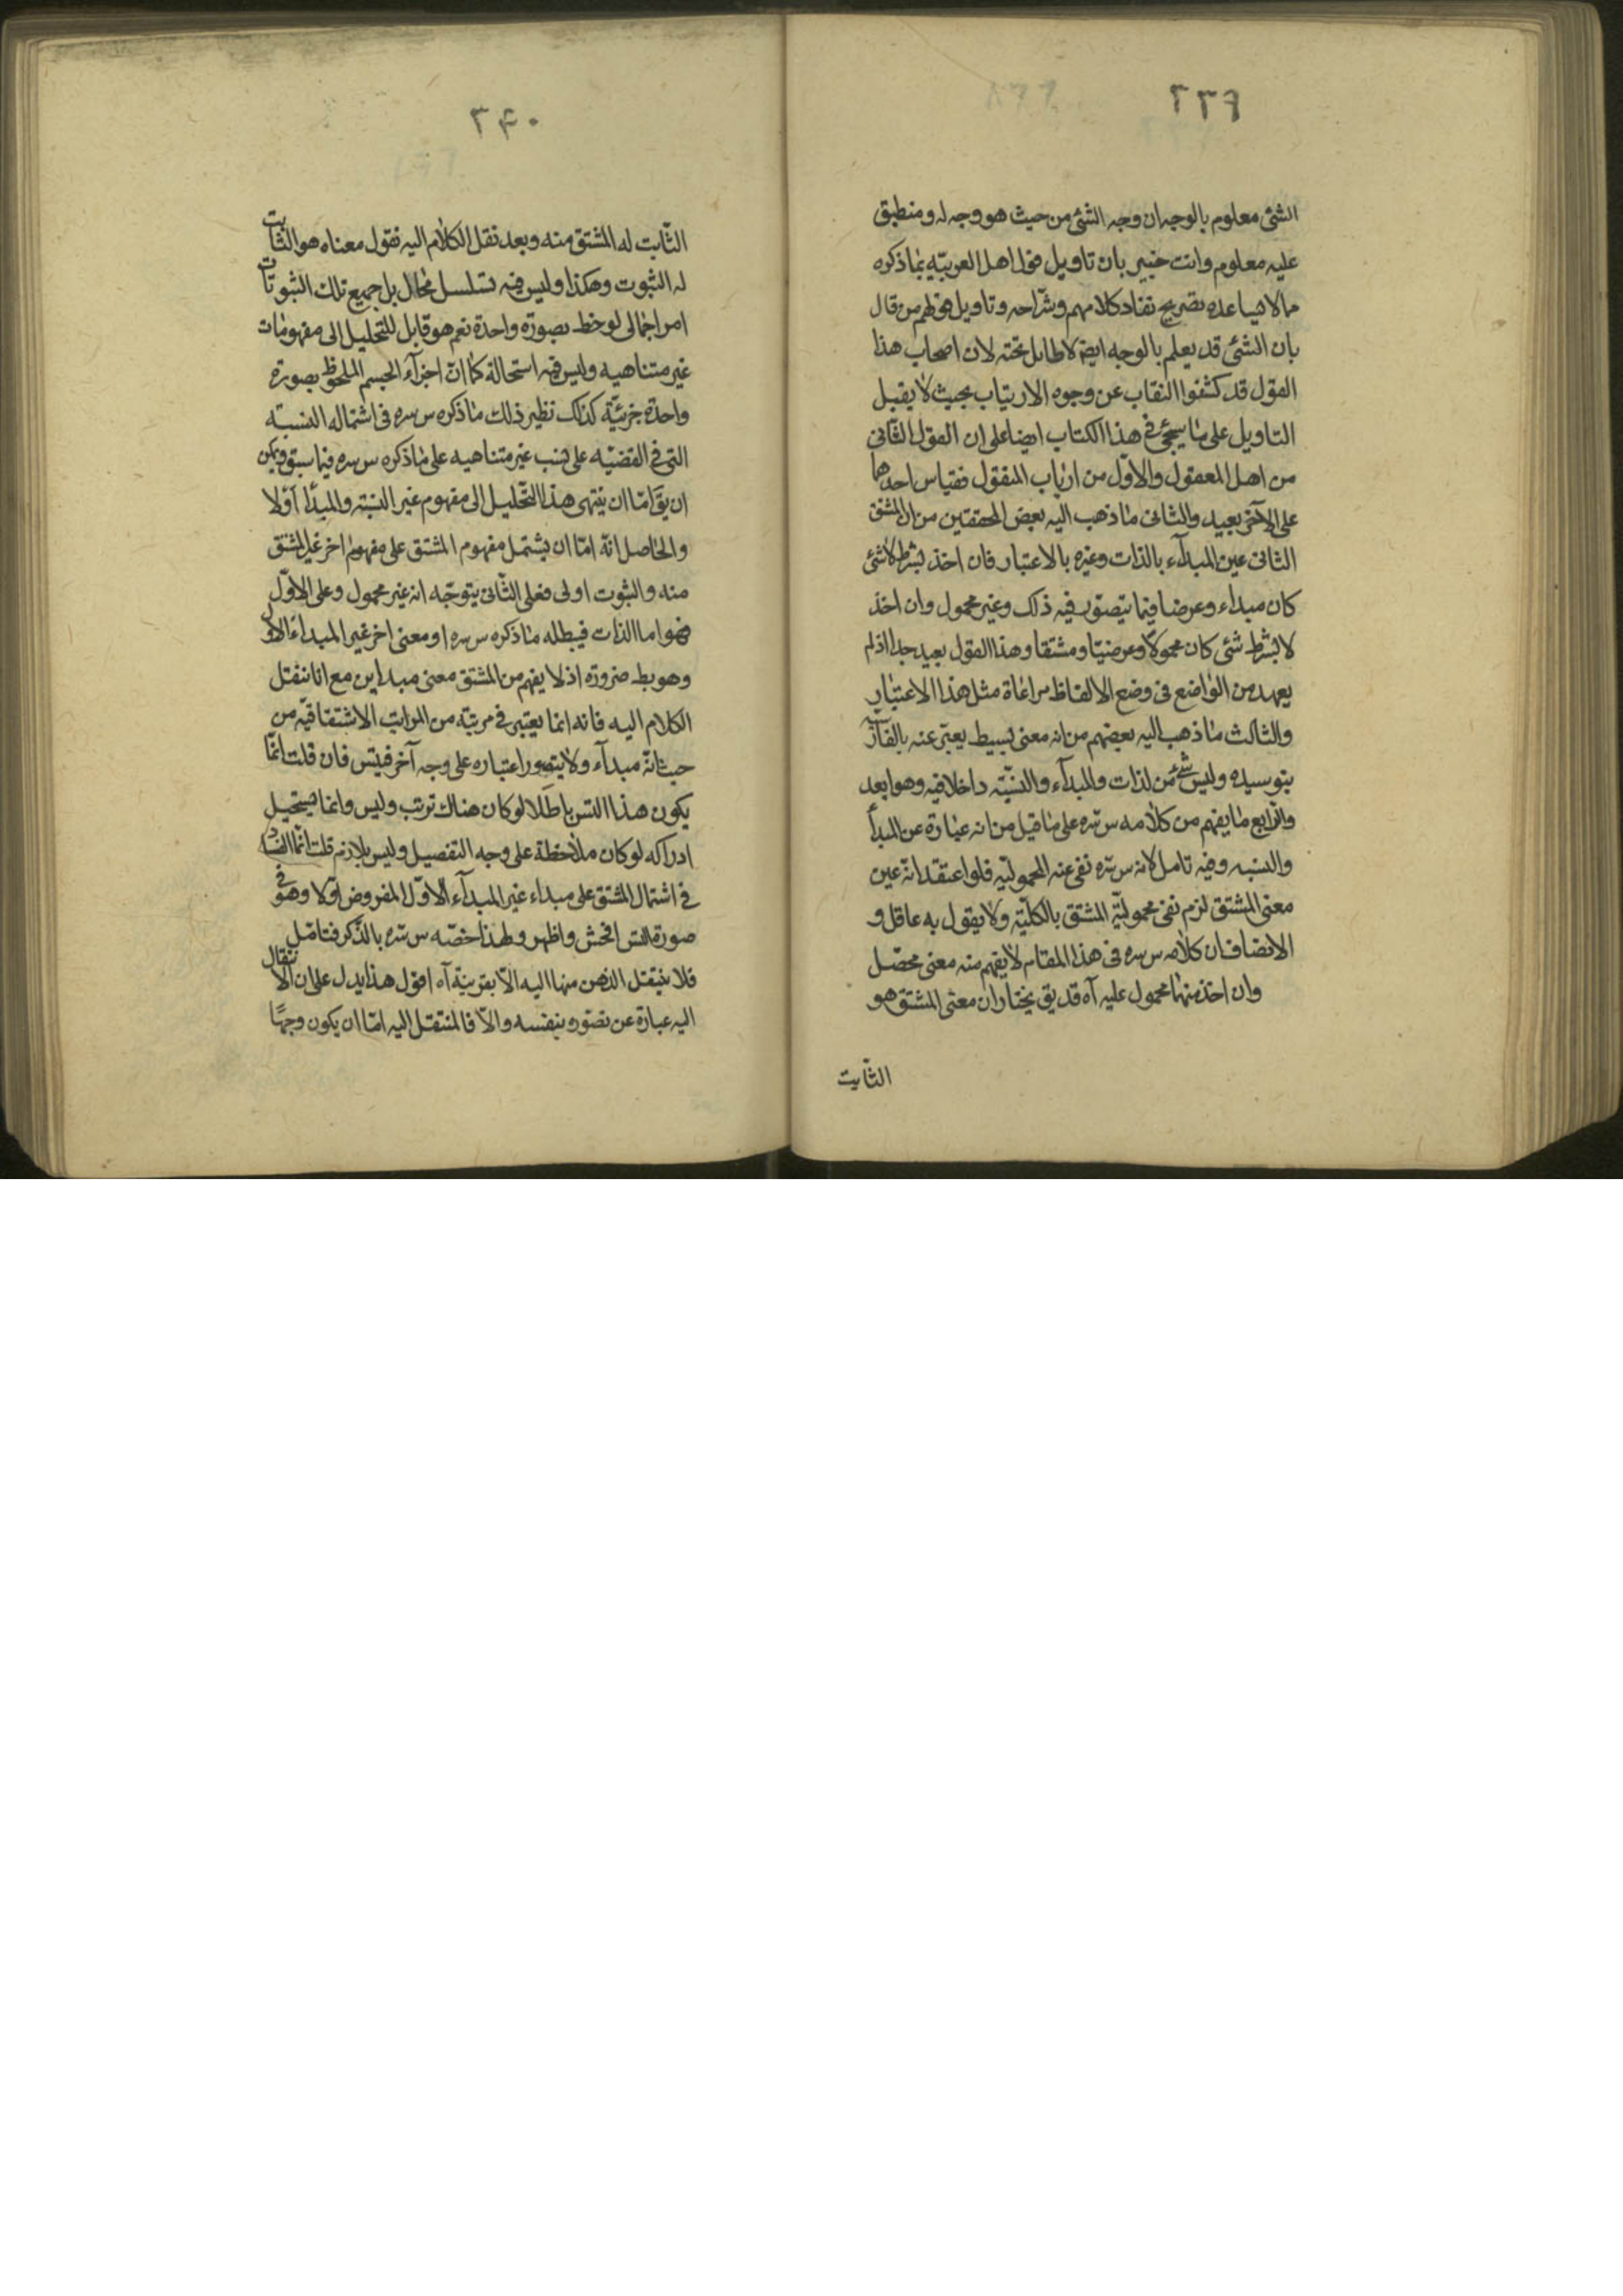 ٢٣٩
الشئ معلوم بالوجه ان وجه الشئ من حيث هو وجه له ومنطبق
عليه معلوم وانت خبير بان تاويل قول اهل العربيّه بما ذكره
مما لا يساعده تصريح نقاد كلامهم وشرّاحه وتاويل قولهم من قال
بان الشئ قد يعلم بالوجه ايضا لا طايل تحته لان اصحاب هذا
القول قد كشفوا النقاب عن وجوه الارتياب بحيث لا يقبل
التاويل على ما سيجئ فى هذا الكتاب ايضا على ان القول الثانى
من اهل المعقول والاوّل من ارباب المنقول فقياس احدهما
على الآخر بعيد والثانى ما ذهب اليه بعض المحققين من ان المشتق
الثانى عين المبدآء بالذات وغيره بالاعتبار فان اخذ بشرط لا شئ
كان مبداء وعرضا فيما يتصور فيه ذلك وغير محمول وان اخذ
لا بشرط شئ كان محمولا وعرضيّا ومشتقا وهذا القول بعيد جدا اذ لم
يعهد من الواضع فى وضع الالفاظ مراعاة مثل هذا الاعتبار
والثالث ما ذهب اليه بعضهم من انه معنى بسيط يعبّر عنه بالفارسيّة
بتوسيده وليس شئ من الذات والمبدآء والنسبّة داخلا فيه وهو ابعد
والرّابع ما يفهم من كلامه س سّره على ما قيل من انه عبارة عن المبدأ
والنسبه وفيه تامل لانه س سّره نفى عنه المحموليّه فلو اعتقد انّه عين
معنى المشتق لزم نفى محموليّة المشتق بالكلّيّة ولا يقول به عاقل و
الانصاف ان كلامه س سره فى هذا المقام لا يفهم منه معنى محصّل
وان اخذ منها محمول عليه آه قد يق يختار ان معنى المشتق هو
الثّابت
٢۴٠
الثّابت له المشتق منه وبعد نقل الكلام اليه نقول معناه هو الثابت
له الثبوت وهكذا وليس فيه تسلسل محال بل جميع تلك الثبوتات
امر اجمالى لوحظ بصورة واحدة نعم هو قابل للتحليل الى مفهومات
غير متناهيه وليس فيه استحالة كما انّ اجزآء الجسم الملحوظ بصورة
واحدة جزئيّة كذلك نظير ذلك ما ذكره س سره فى اشتماله النسبته
التى فى القضيّه على نسب غير متناهيه على ما ذكره س سره فيما سبق ويمكن
ان يقّ امّا ان ينتهى هذا التحليل الى مفهوم غير النسبته والمبدأ اوّلا
والحاصل انّه امّا ان يشتمل مفهوم المشتق على مفهوم اخر غير المشتق
منه والثبوت اولى فعلى الثّانى يتوجّه انه غير محمول وعلى الاوّل
فهو اما الذات فيبطله ما ذكره س سره او معنى اخر غير المبداء الاوّل
وهو بط ضرورة اذ لا يفهم من المشتق معنى مبداين مع انا ننقل
الكلام اليه فانه انما يعتبر فى مرتبّة من المراتب الاشتقاقيّه من
حيث انّه مبدآء ولا يتصور اعتباره على وجه آخر فيتس فان قلت انّما
يكون هذا التس باطلا لو كان هناك ترتب وليس وانما يستحيل
ادراكه لو كان ملاحظة على وجه التفصيل وليس بلازم قلت انّما الفساد
فى اشتمال المشتق على مبداء غير المبدآء الاوّل المفروض اوّلا وهو فى
صورة التس افحش واظهر ولهذا خصّه س سّره بالذّكر فتامّل
فلا ينتقل الذهن منها اليه الاّ بقرينة آه اقول هذا يدل على ان الانتقال
اليه عبارة عن تصّوره بنفسه والاّ فالمنتقل اليه امّا ان يكون وجهًا